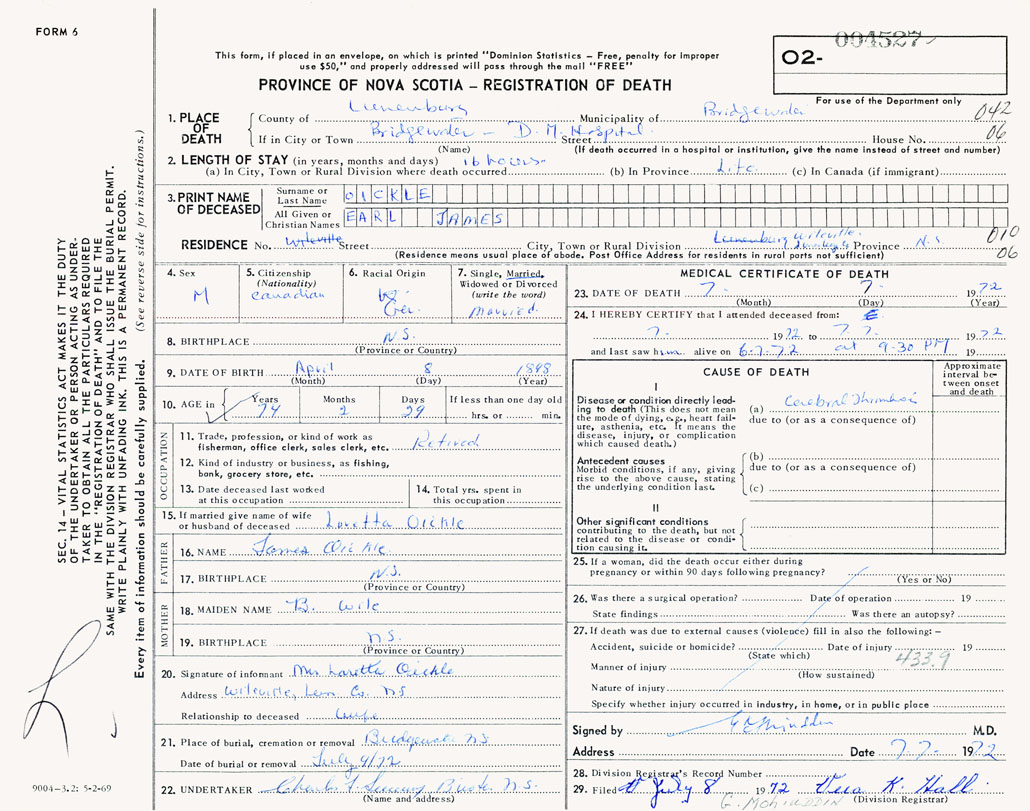 FORM 6
004527
O2-
This form, if placed in an envelope, on which is printed "Dominion Statistics – Free, penalty for improper
use $50," and properly addressed will pass through the mail "FREE"
PROVINCE OF NOVA SCOTIA – REGISTRATION OF DEATH
For use of the Department only
1. PLACE OF DEATH
County of Lunenburg Municipality of Bridgewater 042
If in City or Town Bridgewater – D. M. Hospital Street House No. 06
(Name) (If death occurred in a hospital or institution, give the name instead of street and number)
2. LENGTH OF STAY (in years, months and days) 16 hours
(a) In City, Town or Rural Division where death occurred (b) In Province Life (c) In Canada (if immigrant)
3. PRINT NAME OF DECEASED
Surname or Last Name OICKLE
All Given or Christian Names EARL JAMES
RESIDENCE No. Wileville Street City, Town or Rural Division Lunenburg Wileville Province N.S. 010
(Residence means usual place of abode. Post Office Address for residents in rural parts not sufficient) 06
4. Sex
M
5. Citizenship
(Nationality)
Canadian
6. Racial Origin
Ger.
7. Single, Married, Widowed or Divorced
(write the word)
Married
8. BIRTHPLACE N.S.
(Province or Country)
9. DATE OF BIRTH April 8 1898
(Month) (Day) (Year)
10. AGE in Years Months Days If less than one day old
74 2 29 hrs. or min.
OCCUPATION
11. Trade, profession, or kind of work as
fisherman, office clerk, sales clerk, etc. Retired
12. Kind of industry or business, as fishing,
bank, grocery store, etc.
13. Date deceased last worked
at this occupation
14. Total yrs. spent in
this occupation
15. If married give name of wife
or husband of deceased Loretta Oickle
FATHER
16. NAME James Oickle
17. BIRTHPLACE N.S.
(Province or Country)
MOTHER
18. MAIDEN NAME B. Wile
19. BIRTHPLACE N.S.
(Province or Country)
20. Signature of informant Mrs Loretta Oickle
Address Wileville, Lun Co. NS
Relationship to deceased Wife
21. Place of burial, cremation or removal Bridgewater NS
Date of burial or removal July 9/72
22. UNDERTAKER N.S.
(Name and address)
MEDICAL CERTIFICATE OF DEATH
23. DATE OF DEATH 7 7 1972
(Month) (Day) (Year)
24. I HEREBY CERTIFY that I attended deceased from:
7. 1972 to 7.7. 1972
and last saw him alive on 6.7.72 at 9-30 PM 19
CAUSE OF DEATH
Approximate interval between onset and death
I
Disease or condition directly leading to death (This does not
mean the mode of dying, e.g., heart failure, asthenia, etc. It means the
disease, injury, or complication
which caused death.)
(a) Cerebral Thrombosis
due to (or as a consequence of)
Antecedent causes
Morbid conditions, if any, giving
rise to the above cause, stating
the underlying condition last.
(b)
due to (or as a consequence of)
(c)
II
Other significant conditions
contributing to the death, but not
related to the disease or condition causing it.
25. If a woman, did the death occur either during
pregnancy or within 90 days following pregnancy?
(Yes or No)
26. Was there a surgical operation? Date of operation 19
State findings Was there an autopsy?
27. If death was due to external causes (violence) fill in also the following: –
Accident, suicide or homicide? Date of injury 19
(State which) 433.9
Manner of injury
(How sustained)
Nature of injury
Specify whether injury occurred in industry, in home, or in public place
Signed by M.D.
Address Date 7 7 1972
28. Division Registrar's Record Number
29. Filed July 8 1972 Vera K. Hall
G. MOHIUDDIN (Division Registrar)
SEC. 14 – VITAL STATISTICS ACT MAKES IT THE DUTY
OF THE UNDERTAKER OR PERSON ACTING AS UNDERTAKER TO OBTAIN ALL THE PARTICULARS REQUIRED
IN THE "REGISTRATION OF DEATH" AND TO FILE THE
SAME WITH THE DIVISION REGISTRAR WHO SHALL ISSUE THE BURIAL PERMIT.
WRITE PLAINLY WITH UNFADING INK. THIS IS A PERMANENT RECORD.
Every item of information should be carefully supplied. (See reverse side for instructions.)
9004-3.2: 5-2-69